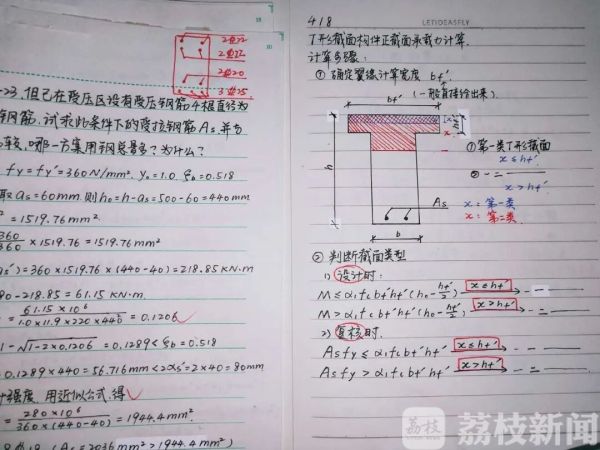 2Φ22
2Φ22
2Φ20
3Φ25
-23.但已在受压区设有受压钢筋4根直径为
钢筋,试求此条件下的受拉钢筋As,并与
比较,哪一方案用钢总量多?为什么?
fy=fy'=360N/mm². γ₀=1.0 ξb=0.518
取as=60mm.则h₀=h-as=500-60=440mm
=1519.76mm²
360/360 ×1519.76=1519.76mm²
as')=360×1519.76×(440-40)=218.85KN·m
80-218.85=61.15 KN·m
=61.15×10⁶/1.0×11.9×220×440²=0.1206
1-√1-2×0.1206=0.1289<ξb=0.518
0.1289×440=56.716mm<2as'=2×40=80mm
强度,用近似公式,得
=280×10⁶/360×(440-40)=1944.4mm²
(As=2036mm²>1944.4mm²)
418
LETIDEASFLY
T形截面构件正截面承载力计算.
计算步骤:
① 确定翼缘计算宽度 bf'.
(一般直接给出来)
bf'
x
x
hf'
h
As
b
①第一类T形截面
x≤hf'
②-二———
x>hf'
x:第一类
x:第二类
② 判断截面类型
1) 设计时:
M≤α₁fcbf'hf'(h₀-hf'/2) x≤hf' → -一
M>α₁fcbf'hf'(h₀-hf'/2) x>hf' → -二
2) 复核时.
Asfy≤α₁fcbf'hf' x≤hf' → -一
Asfy>α₁fcbf'hf' x>hf' → -二
荔枝
荔枝新闻